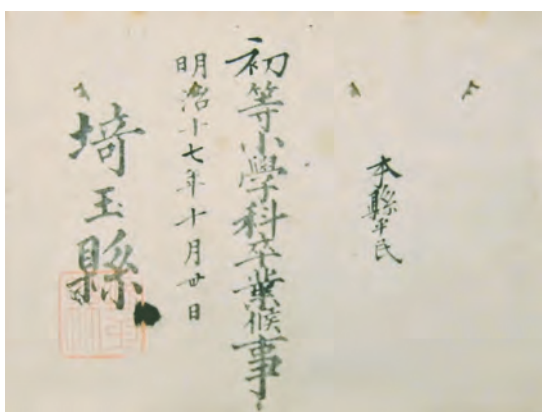 本縣平民
初等小學科卒業候事
明治十七年十月廿日
埼玉縣